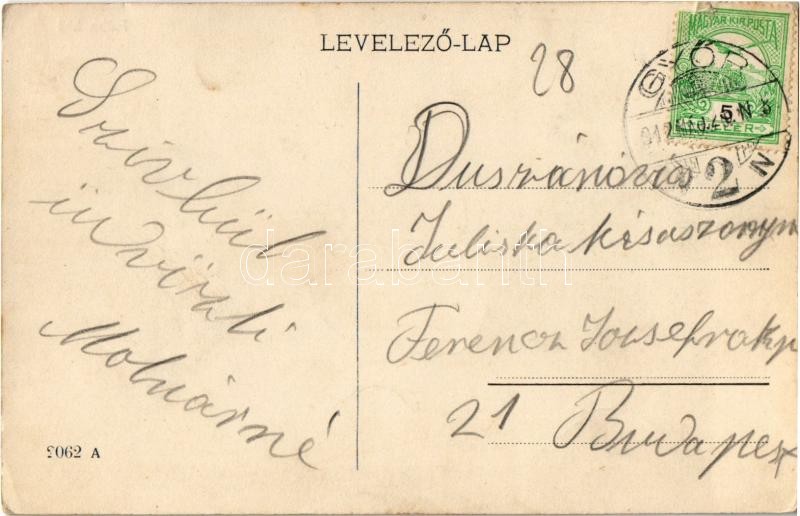 LEVELEZŐ-LAP
28
MAGYAR KIR. POSTA
5
FILLÉR
GYŐR
2
N
Szivböl
üdvözli
Molnárné
Duszánovics
Juliska kisaszonynak
Ferencz Josef rakp
21 Budapest
2062 A
darabanth